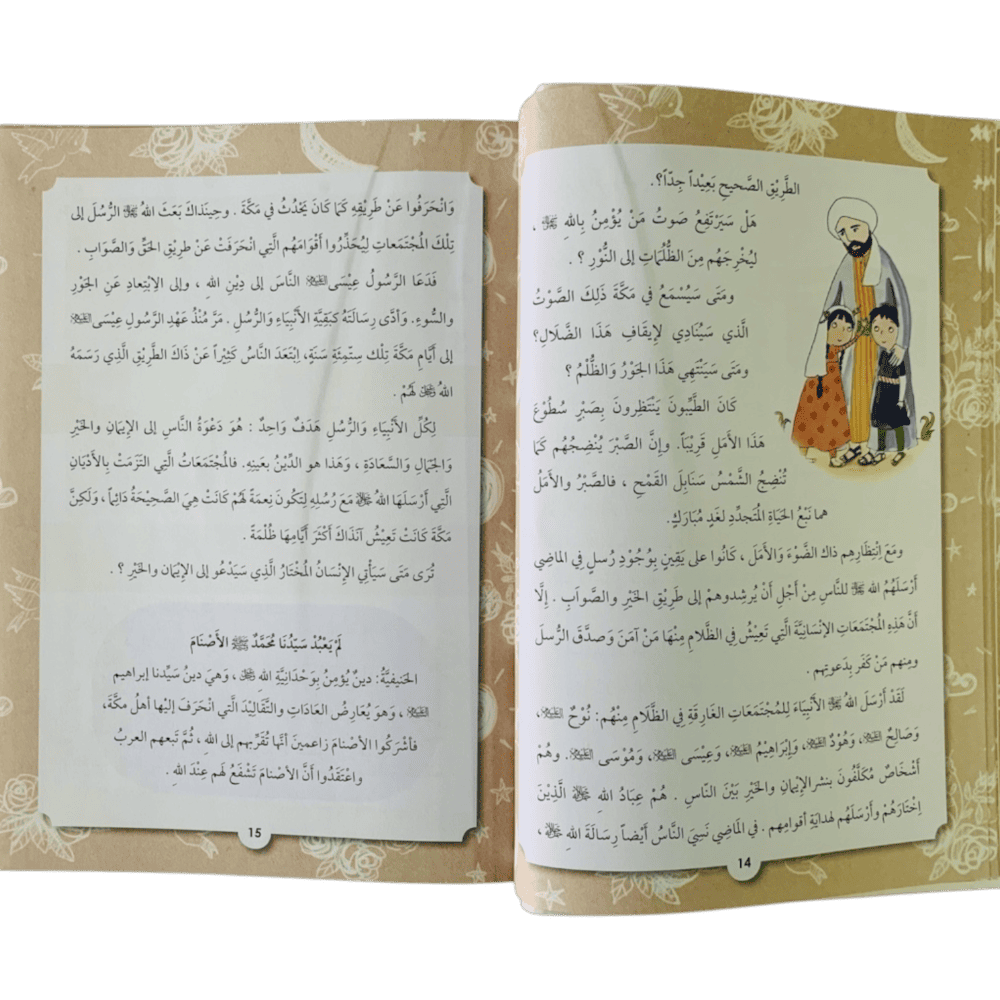 الطَّرِيْقِ الصَّحيحِ بَعِيْداً جِدّاً؟.
هَل سَيَرْتَفِعُ صَوتُ مَنْ يُؤْمِنُ بِاللهِ ﷻ ،
لِيُخْرِجَهُم مِنَ الظُّلُمَاتِ إلى النُّوْرِ ؟ .
ومَتَى سَيُسْمَعُ في مَكَّةَ ذَلِكَ الصَّوْتُ
الَّذي سَيُنَادِي لإيقَافِ هَذَا الضَّلالِ؟
ومَتَى سَيَنْتَهِي هَذَا الجَوْرُ وَالظُّلْمُ ؟
كَانَ الطَّيِّبونَ يَنْتَظِرونَ بِصَبْرٍ سُطُوْعَ
هَذَا الأَمَلِ قَرِيْبَاً. وإنَّ الصَّبْرَ يُنْضِجُهُم كَمَا
تُنْضِجُ الشَّمْسُ سَنَابِلَ القَمْحِ ، فالصَّبْرُ والأَمَلُ
هما نَبْعُ الحَيَاةِ المُتَجدِّدِ لِغَدٍ مُبَارَكٍ.
ومَعَ اِنْتِظَارِهِم ذاك الضَّوْءَ والأَمَلَ ، كَانُوا على يَقِينٍ بِوُجُوْدِ رُسلٍ في المَاضِي
أَرْسَلَهُمُ الله ﷻ للنَّاسِ مِنْ أَجْلِ أَنْ يُرشِدوهمْ إلى طَرِيْقِ الخَيْرِ والصَّوَابِ . إِلَّا
أنَّ هَذِهِ المُجْتَمَعَاتِ الإنْسَانِيَّةَ الَّتي تَعِيْشُ في الظَّلامِ مِنْهَا مَنْ آمَنَ وَصَدَّقَ الرُّسلَ
ومِنهم مَنْ كَفَر بِدَعوتِهم.
لَقَدْ أَرْسَلَ اللهُ ﷻ الأَنْبِيَاءَ لِلمُجْتَمَعَاتِ الغَارِقَةِ في الظَّلَامِ مِنْهُم: نُوْحٌ عليه السلام،
وَصَالِحٌ عليه السلام، وَهُوْدٌ عليه السلام، وَإبْرَاهِيْمُ عليه السلام، وَعِيْسَى عليه السلام، وَمُوْسَى عليه السلام. وهُمْ
أَشْخَاصٌ مُكَلَّفُونَ بنشرِ الإيْمَانِ والخَيْرِ بَيْنَ النَّاسِ . هُمْ عِبَادُ اللهِ ﷻ الَّذِيْنَ
اِخْتَارَهُمْ وأَرْسَلَهُم لهدايةِ أقوامِهِم . في المَاضِي نَسِيَ النَّاسُ أَيْضاً رِسَالَةَ اللهِ ﷻ ،
14
وَانْحَرَفُوا عَنْ طَرِيْقِهِ كَمَا كَانَ يَحْدُثُ في مَكَّةَ . وحِينَذاكَ بَعَثَ اللهُ ﷻ الرُّسُلَ إلى
تِلْكَ المُجْتَمَعاتِ لِيُحَذِّرُوا أَقْوَامَهُم الَّتي انْحَرَفَتْ عَنْ طرِيْقِ الحَقِّ وَالصَّوَابِ .
فَدَعَا الرَّسُولُ عِيْسَى عليه السلام النَّاسَ إلى دِيْنِ اللهِ ، وإلى الاِبْتِعادِ عَنِ الجَوْرِ
والسُّوءِ. وَأدَّى رِسَالَتَهُ كبَقِيَّةِ الأَنْبِيَاءِ وَالرُّسُلِ . مَرَّ مُنْذُ عَهْدِ الرَّسولِ عِيْسَى عليه السلام
إلى أَيَّامِ مَكَّةَ تِلْك سِتّمِئةِ سَنَةٍ، اِبْتَعَدَ النَّاسُ كَثِيْراً عَنْ ذَاكَ الطَّرِيْقِ الَّذِي رَسَمَهُ
اللهُ ﷻ لَهُمْ .
لِكُلِّ الأَنْبِيَاءِ وَالرُّسُلِ هَدَفٌ وَاحِدٌ : هُوَ دَعْوَةُ النَّاسِ إلى الإِيْمانِ والخَيْرِ
وَالجَمَالِ والسَّعَادَةِ ، وَهَذا هو الدِّيْنُ بَعَينِهِ. فالمُجْتَمَعَاتُ الَّتي التَزَمَتْ بِالأَدْيَانِ
الَّتي أَرْسَلَهَا اللهُ ﷻ مَعَ رُسُلِهِ لِتَكُونَ نِعمَةً لَهُمْ كَانَتْ هِيَ الصَّحِيْحَةُ دَائِماً ، وَلَكِنَّ
مَكَّةَ كَانَتْ تَعِيْشُ آنَذَاكَ أَكْثَرَ أَيَّامِهَا ظُلْمَةً .
تُرَى مَتَى سَيَأْتِي الإنْسَانُ المُخْتَارُ الَّذي سَيَدْعُو إلى الإيْمانِ والخَيْرِ ؟ .
لَمْ يَعْبُدْ سَيّدُنا مُحَمَّدٌ ﷺ الأَصْنَامَ
الحَنِيفيَّةُ: دينٌ يُؤْمِنُ بِوَحْدَانِيَّةِ اللهِ ﷻ، وَهيَ دينُ سَيِّدنا إبراهيم
عليه السلام ، وَهوَ يُعارِضُ العَادَاتِ والتَّقَالِيدَ الَّتي انْحَرَفَ إلَيْها أهلُ مكَّةَ،
فأشْرَكُوا الأصْنَامَ زاعمينَ أنَّها تُقَرِّبهم إلى اللهِ ، ثُمَّ تَبعهم العربُ
واعتَقَدُوا أنَّ الأَصْنَامَ تَشْفَعُ لَهم عِنْدَ اللهِ .
15